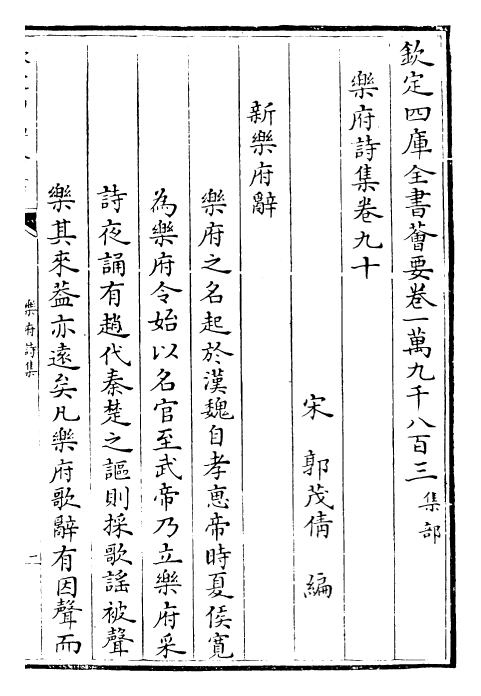 欽定四庫全書薈要卷一萬九千八百三 集部
樂府詩集卷九十
宋 郭茂倩 編
新樂府辭
樂府之名起於漢魏自孝惠帝時夏侯寛
為樂府令始以名官至武帝乃立樂府采
詩夜誦有趙代秦楚之謳則採歌謡被聲
樂其來葢亦逺矣凡樂府歌辭有因聲而
樂府詩集